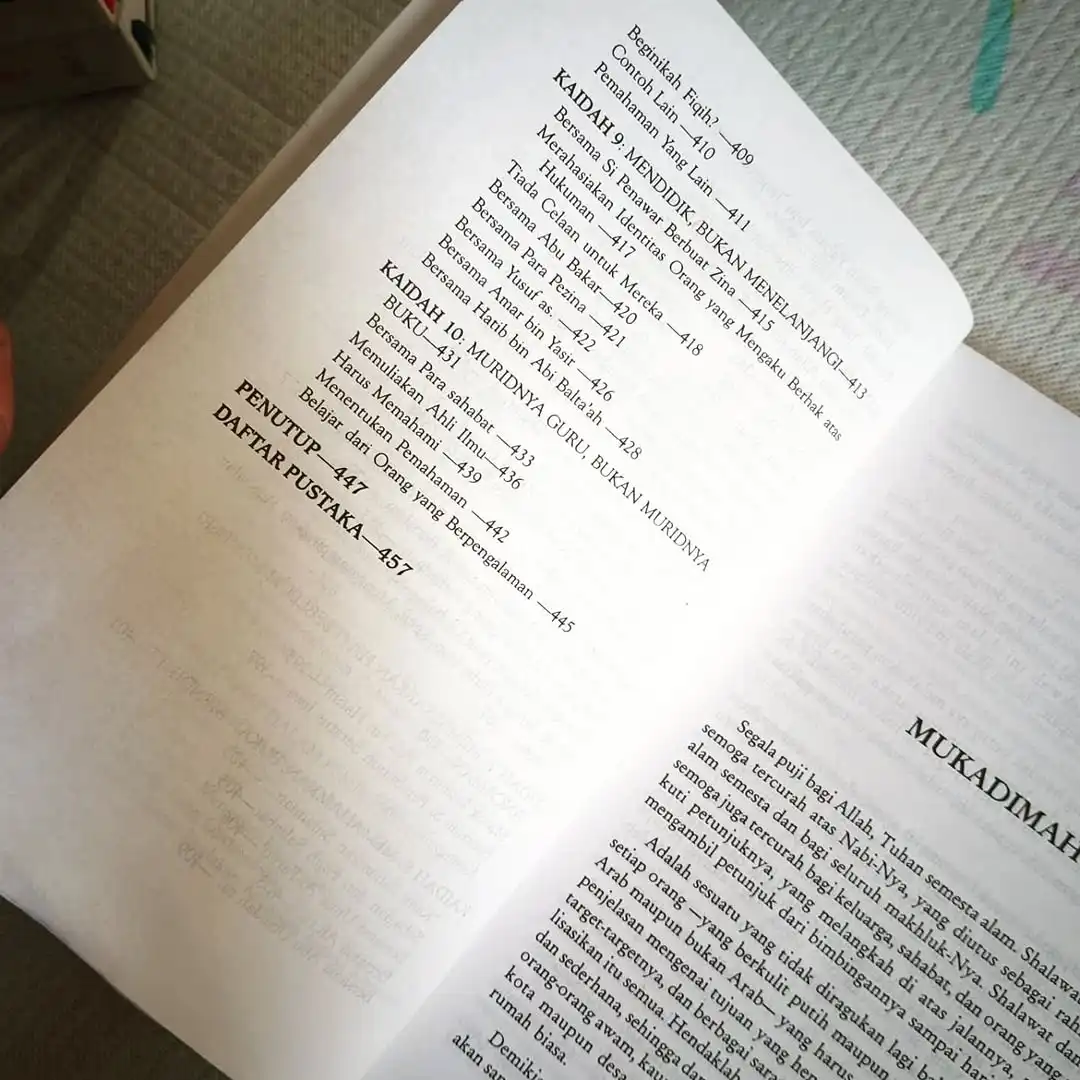 Beginikah Fiqih? —409
Contoh Lain —410
Pemahaman Yang Lain —411
KAIDAH 9: MENDIDIK, BUKAN MENELANJANGI—413
Bersama Si Penawar Berbuat Zina —415
Merahasiakan Identitas Orang yang Mengaku Berhak atas
Hukuman —417
Tiada Celaan untuk Mereka —418
Bersama Abu Bakar—420
Bersama Para Pezina —421
Bersama Yusuf as. —422
Bersama Amar bin Yasir —426
Bersama Hatib bin Abi Balta'ah —428
KAIDAH 10: MURIDNYA GURU, BUKAN MURIDNYA
BUKU—431
Bersama Para sahabat —433
Memuliakan Ahli Ilmu—436
Harus Memahami —439
Menentukan Pemahaman —442
Belajar dari Orang yang Berpengalaman —445
PENUTUP—447
DAFTAR PUSTAKA—457
MUKADIMAH
Segala puji bagi Allah, Tuhan semesta alam. Shalawat
semoga tercurah atas Nabi-Nya, yang diutus sebagai
alam semesta dan bagi seluruh makhluk-Nya. Shalawat dan
semoga juga tercurah bagi keluarga, sahabat, dan orang yang
kuti petunjuknya, yang melangkah di atas jalannya,
mengambil petunjuk dari bimbingannya sampai
Adalah sesuatu yang tidak diragukan lagi
setiap orang —yang berkulit putih maupun
Arab maupun bukan Arab— yang harus
penjelasan mengenai tujuan yang
target-targetnya, dan berbagai
lisasikan itu semua. Hendaklah
dan sederhana, sehingga
orang-orang awam,
kota maupun desa
rumah biasa.
akan